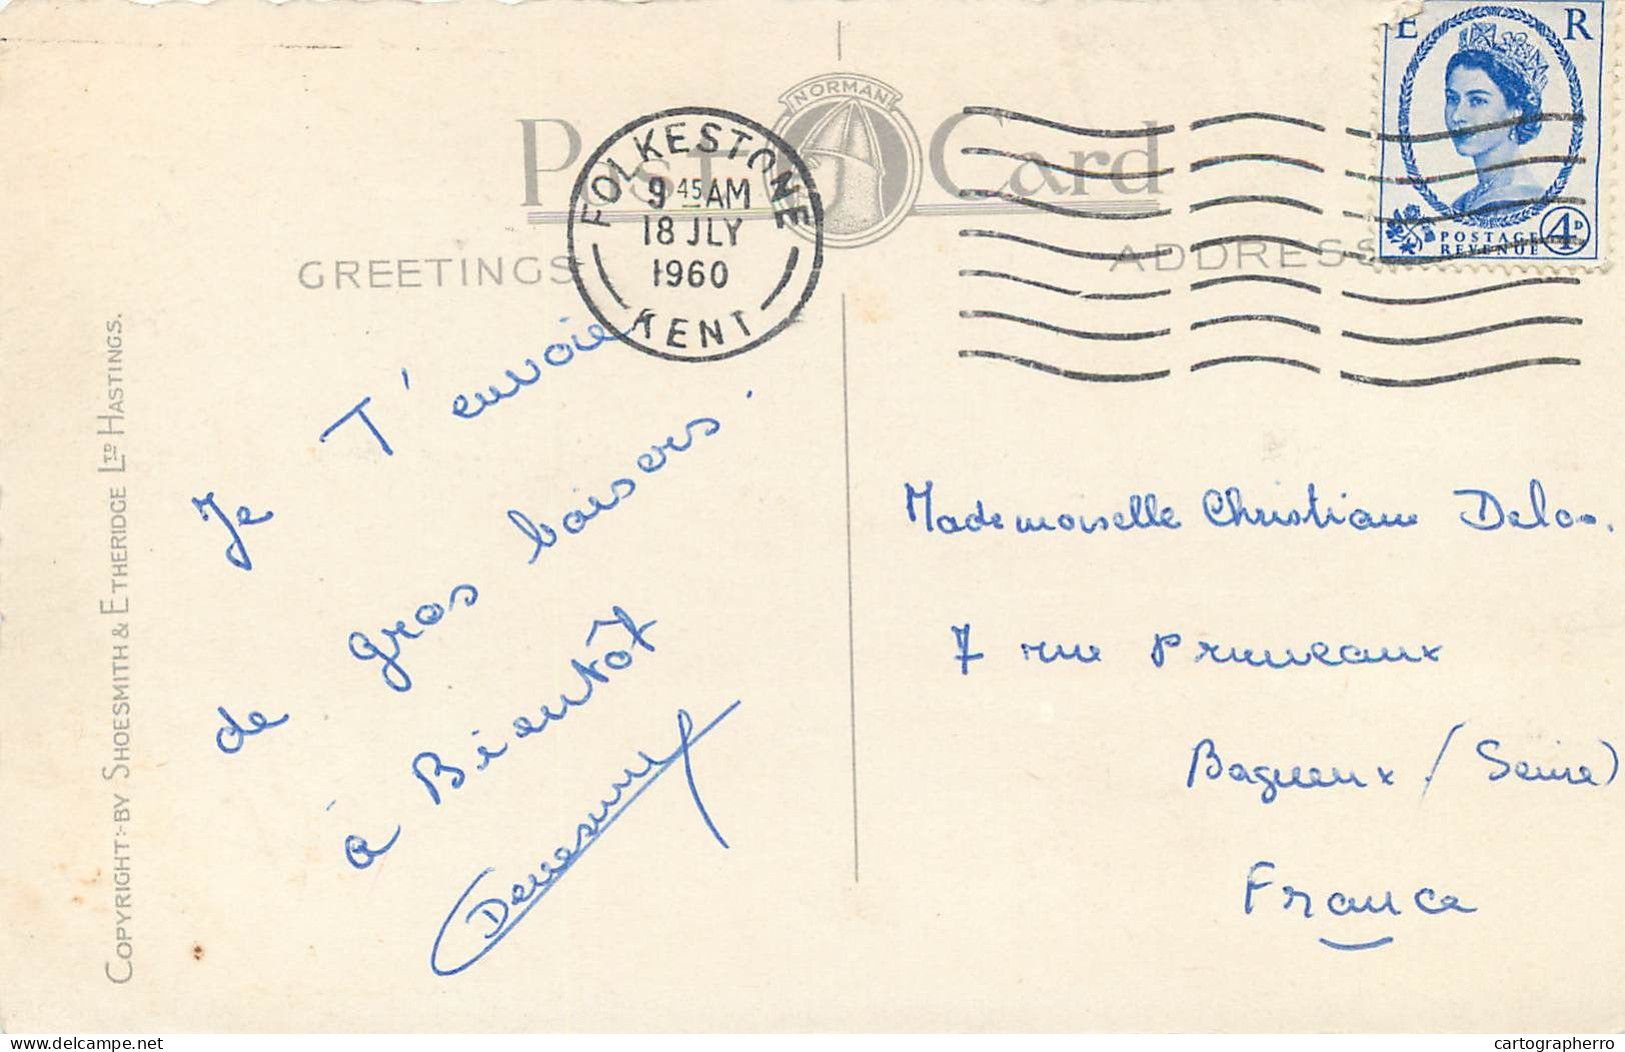 NORMAN
Post Card
FOLKESTONE
9 45 AM
18 JLY
1960
KENT
E R
POSTAGE
REVENUE
4D
GREETINGS
ADDRESS
COPYRIGHT:-BY SHOESMITH & ETHERIDGE LTD HASTINGS.
Je T'envoie
de gros baisers.
à Bientôt
Mademoiselle Christiane
7 rue Pruneaux
Bagneux (Seine)
France
delcampe.net
cartographerro